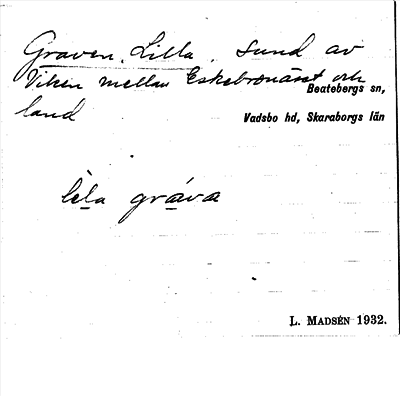 Graven, Lilla. Sund av
Viken mellan Eskebronäset och
Beatebergs sn,
land
Vadsbo hd, Skaraborgs län
lìla gráva
L. MADSÉN 1932.